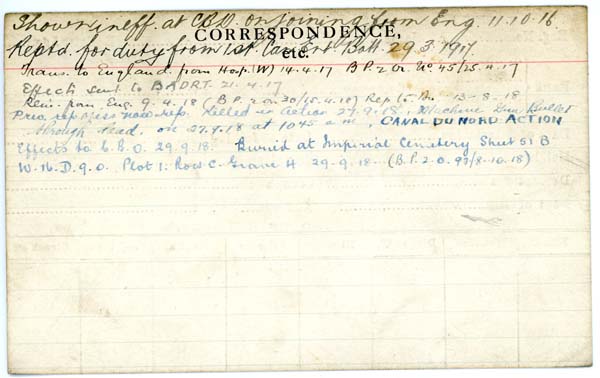 Shown ineff. at C.B.D. on joining from Eng. 11-10-16
CORRESPONDENCE,
etc.
Reptd. for duty from 1st. Can Ent Batt. 29.3.1917.
Trans. to England from Hosp (W) 14-4-17 B.P. 2 Or. No 45/25.4.17
Effects sent to BADRT. 21-4-17
Rein. from Eng. 9-4-18 (B.P. 2 Or 30/15.4.18) 13-8-18
Killed in Action 27.9.18. Machine Gun Bullet
through Head, on 27.9.18 at 1045 a.m, CANAL DU NORD ACTION
Effects to 29.9.18. Buried at Imperial Cemetery Sheet 51 B
W.16.D.9.0. Plot 1. Row C. Grave H 29-9-18. (B.P. 2-0. 97/8-10.18)